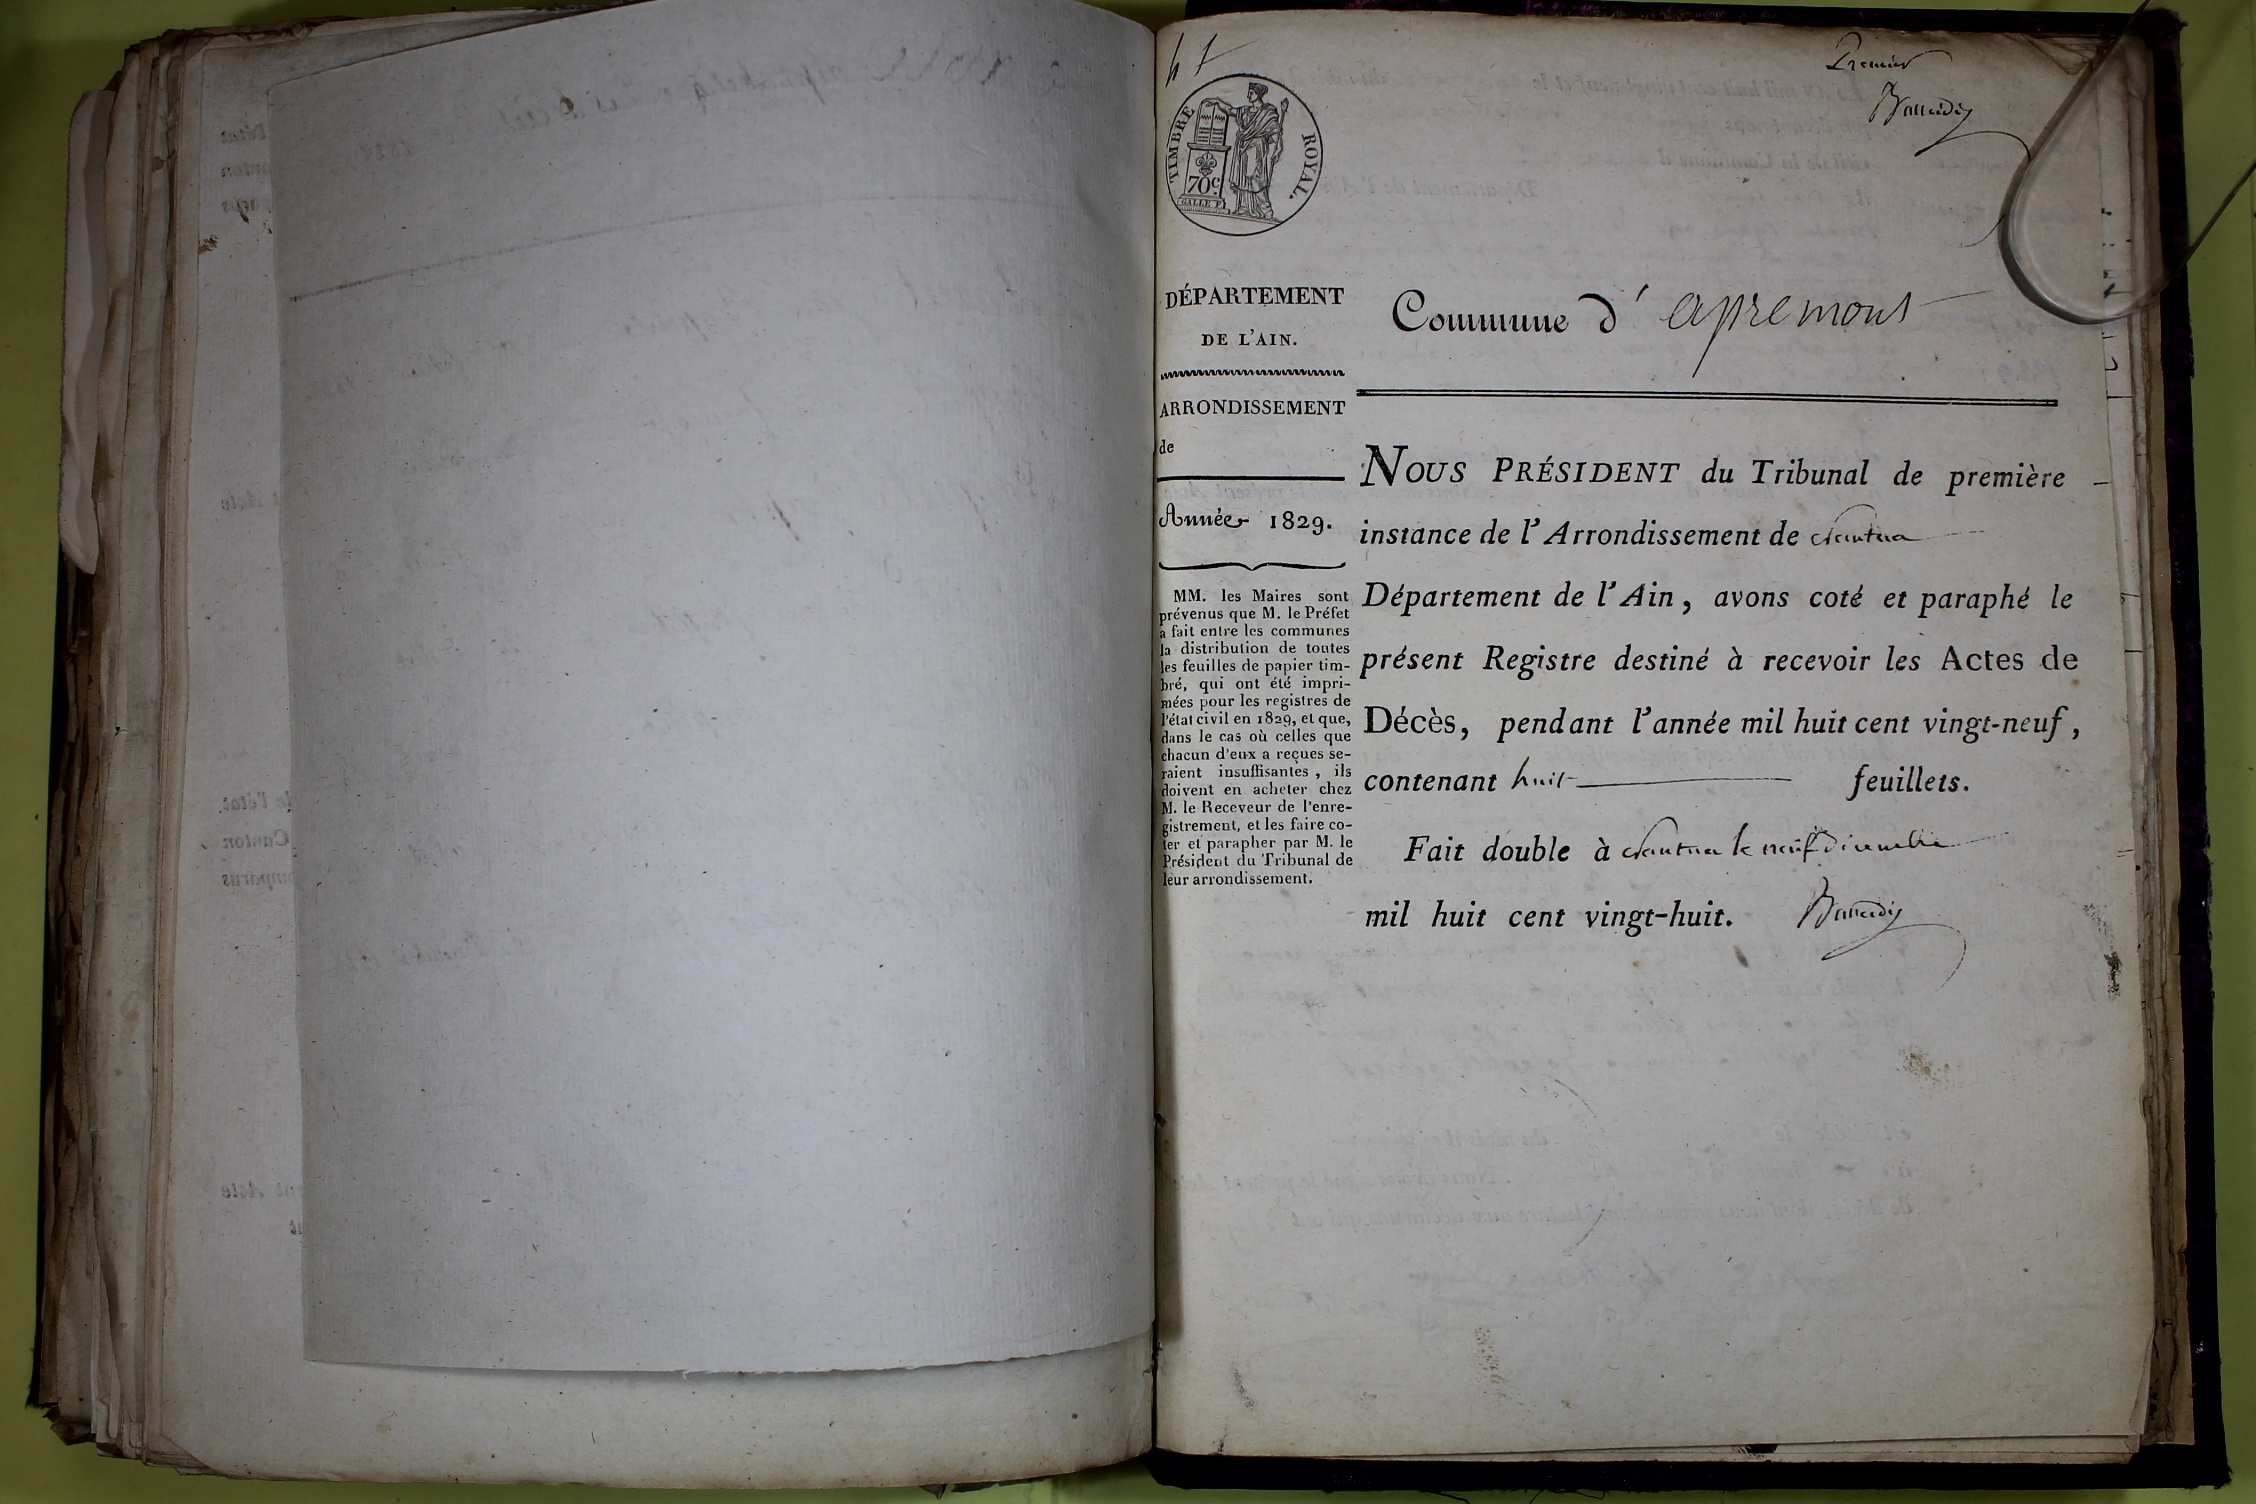 Premier
TIMBRE ROYAL.
70c.
GALLE F.
DÉPARTEMENT
DE L'AIN.
ARRONDISSEMENT
de
Année 1829.
MM. les Maires sont
prévenus que M. le Préfet
a fait entre les communes
la distribution de toutes
les feuilles de papier tim-
bré, qui ont été impri-
mées pour les registres de
l'état civil en 1829, et que,
dans le cas où celles que
chacun d'eux a reçues se-
raient insuffisantes, ils
doivent en acheter chez
M. le Receveur de l'enre-
gistrement, et les faire co-
ter et parapher par M. le
Président du Tribunal de
leur arrondissement.
Commune d' apremont
NOUS PRÉSIDENT du Tribunal de première
instance de l'Arrondissement de Nantua
Département de l'Ain, avons coté et paraphé le
présent Registre destiné à recevoir les Actes de
Décès, pendant l'année mil huit cent vingt-neuf,
contenant huit feuillets.
Fait double à Nantua le neuf décembre
mil huit cent vingt-huit.